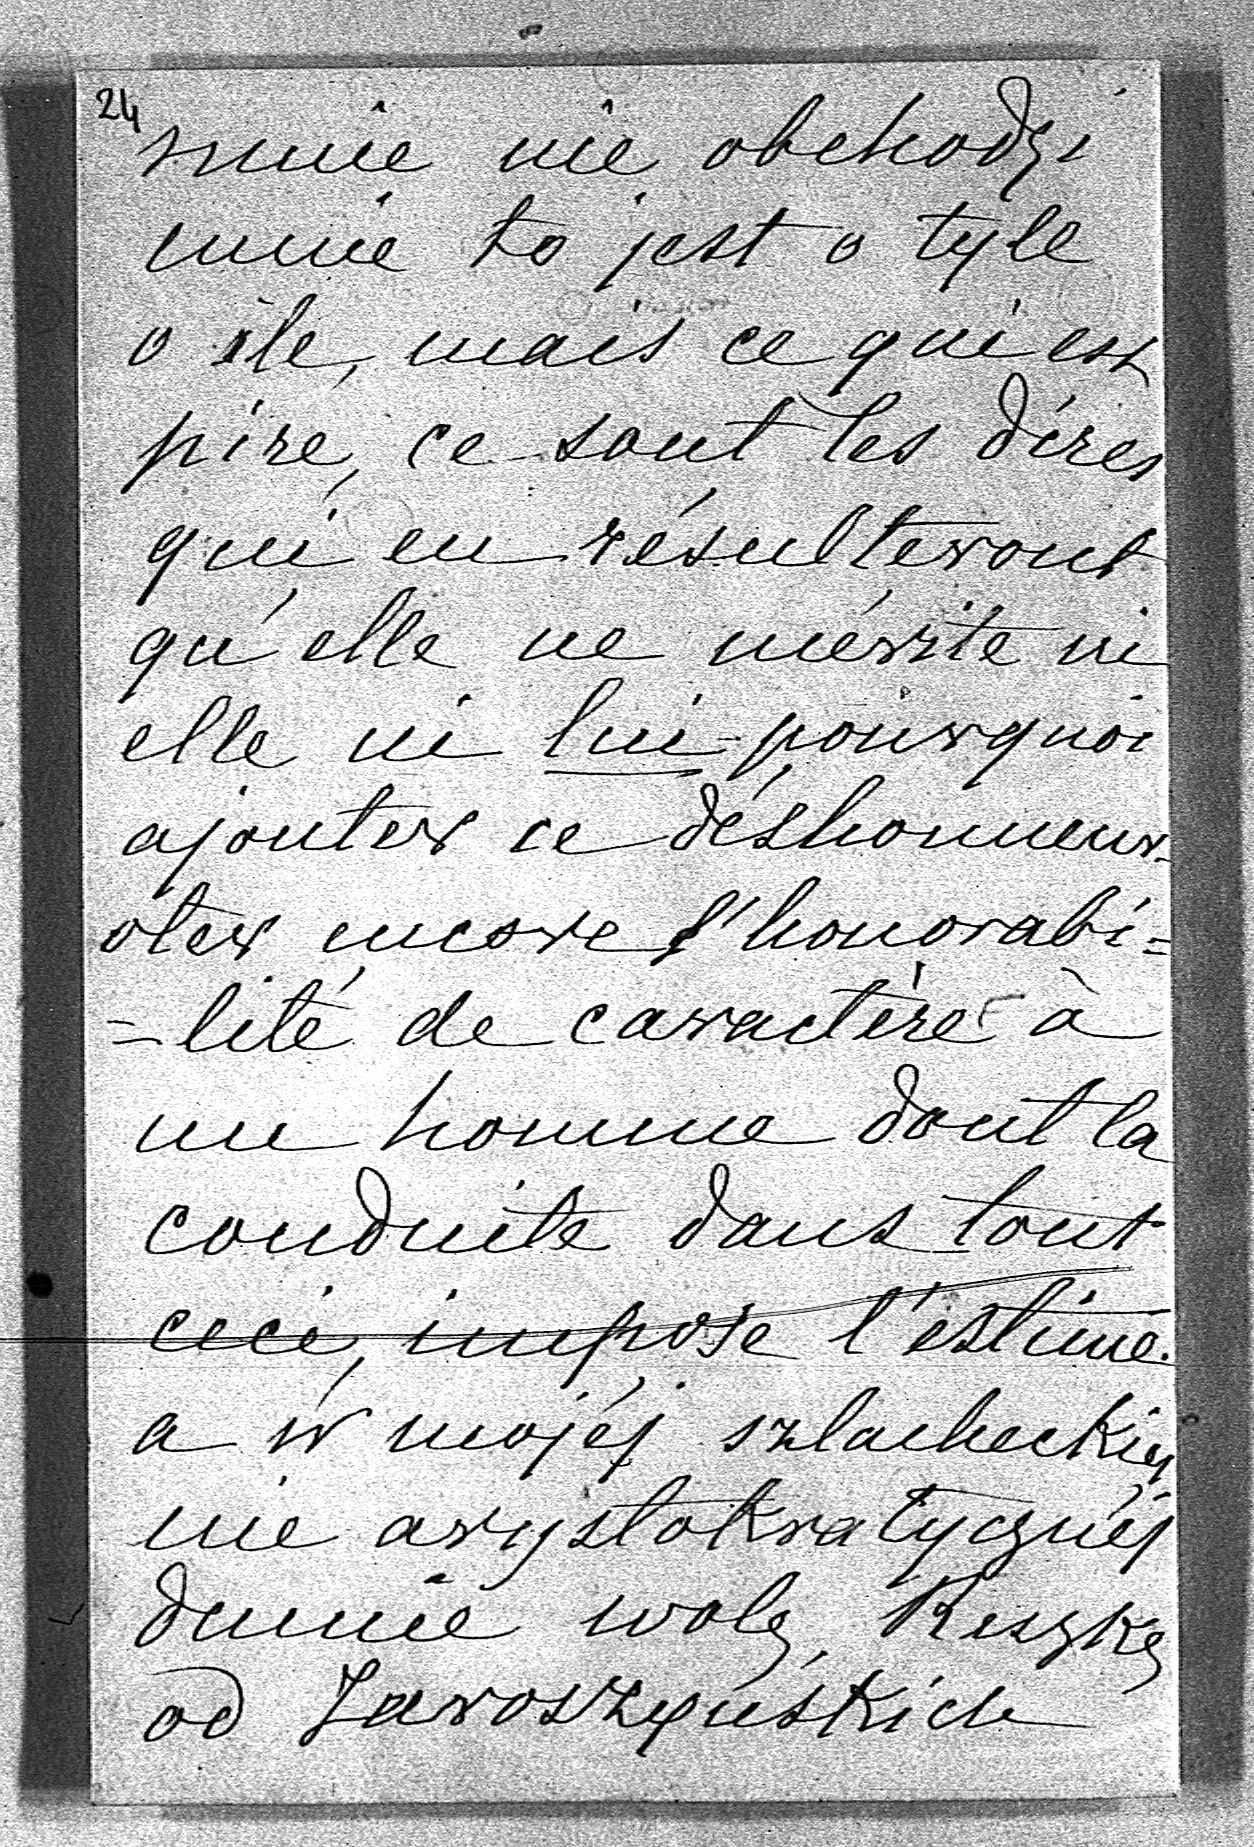 24
mnie nie obchodzi
mnie to jest o tyle
o ile, mais ce qui est
pire, ce sont les dires
qui en résulteront
qu'elle ne mérite ni
elle ni lui pourquoi
ajouter ce déshonneur
oter encore l'honorabi=
=lité de caractère à
un homme dont la
conduite dans tout
ceci, impose l'estime.
a w mojéj szlacheckiej
nie arystokratycznéj
dumie wolę Reszkę
od Jaroszyńskich